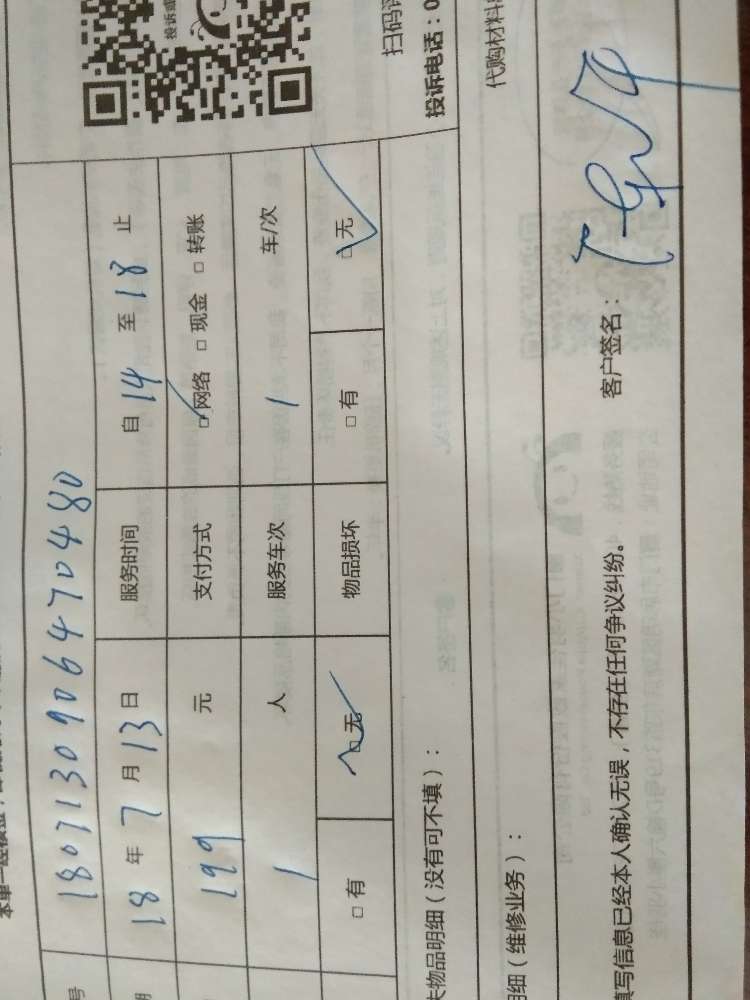 投诉或
扫码评
投诉电话：0
号 180713090647 0480
期 18 年 7 月 13 日 服务时间 自 14 至 18 止
199 元 支付方式 □网络 □现金 □转账
1 人 服务车次 1 车/次
□有 □无 物品损坏 □有 □无
失物品明细（没有可不填）：
代购材料
明细（维修业务）：
填写信息已经本人确认无误，不存在任何争议纠纷。 客户签名：